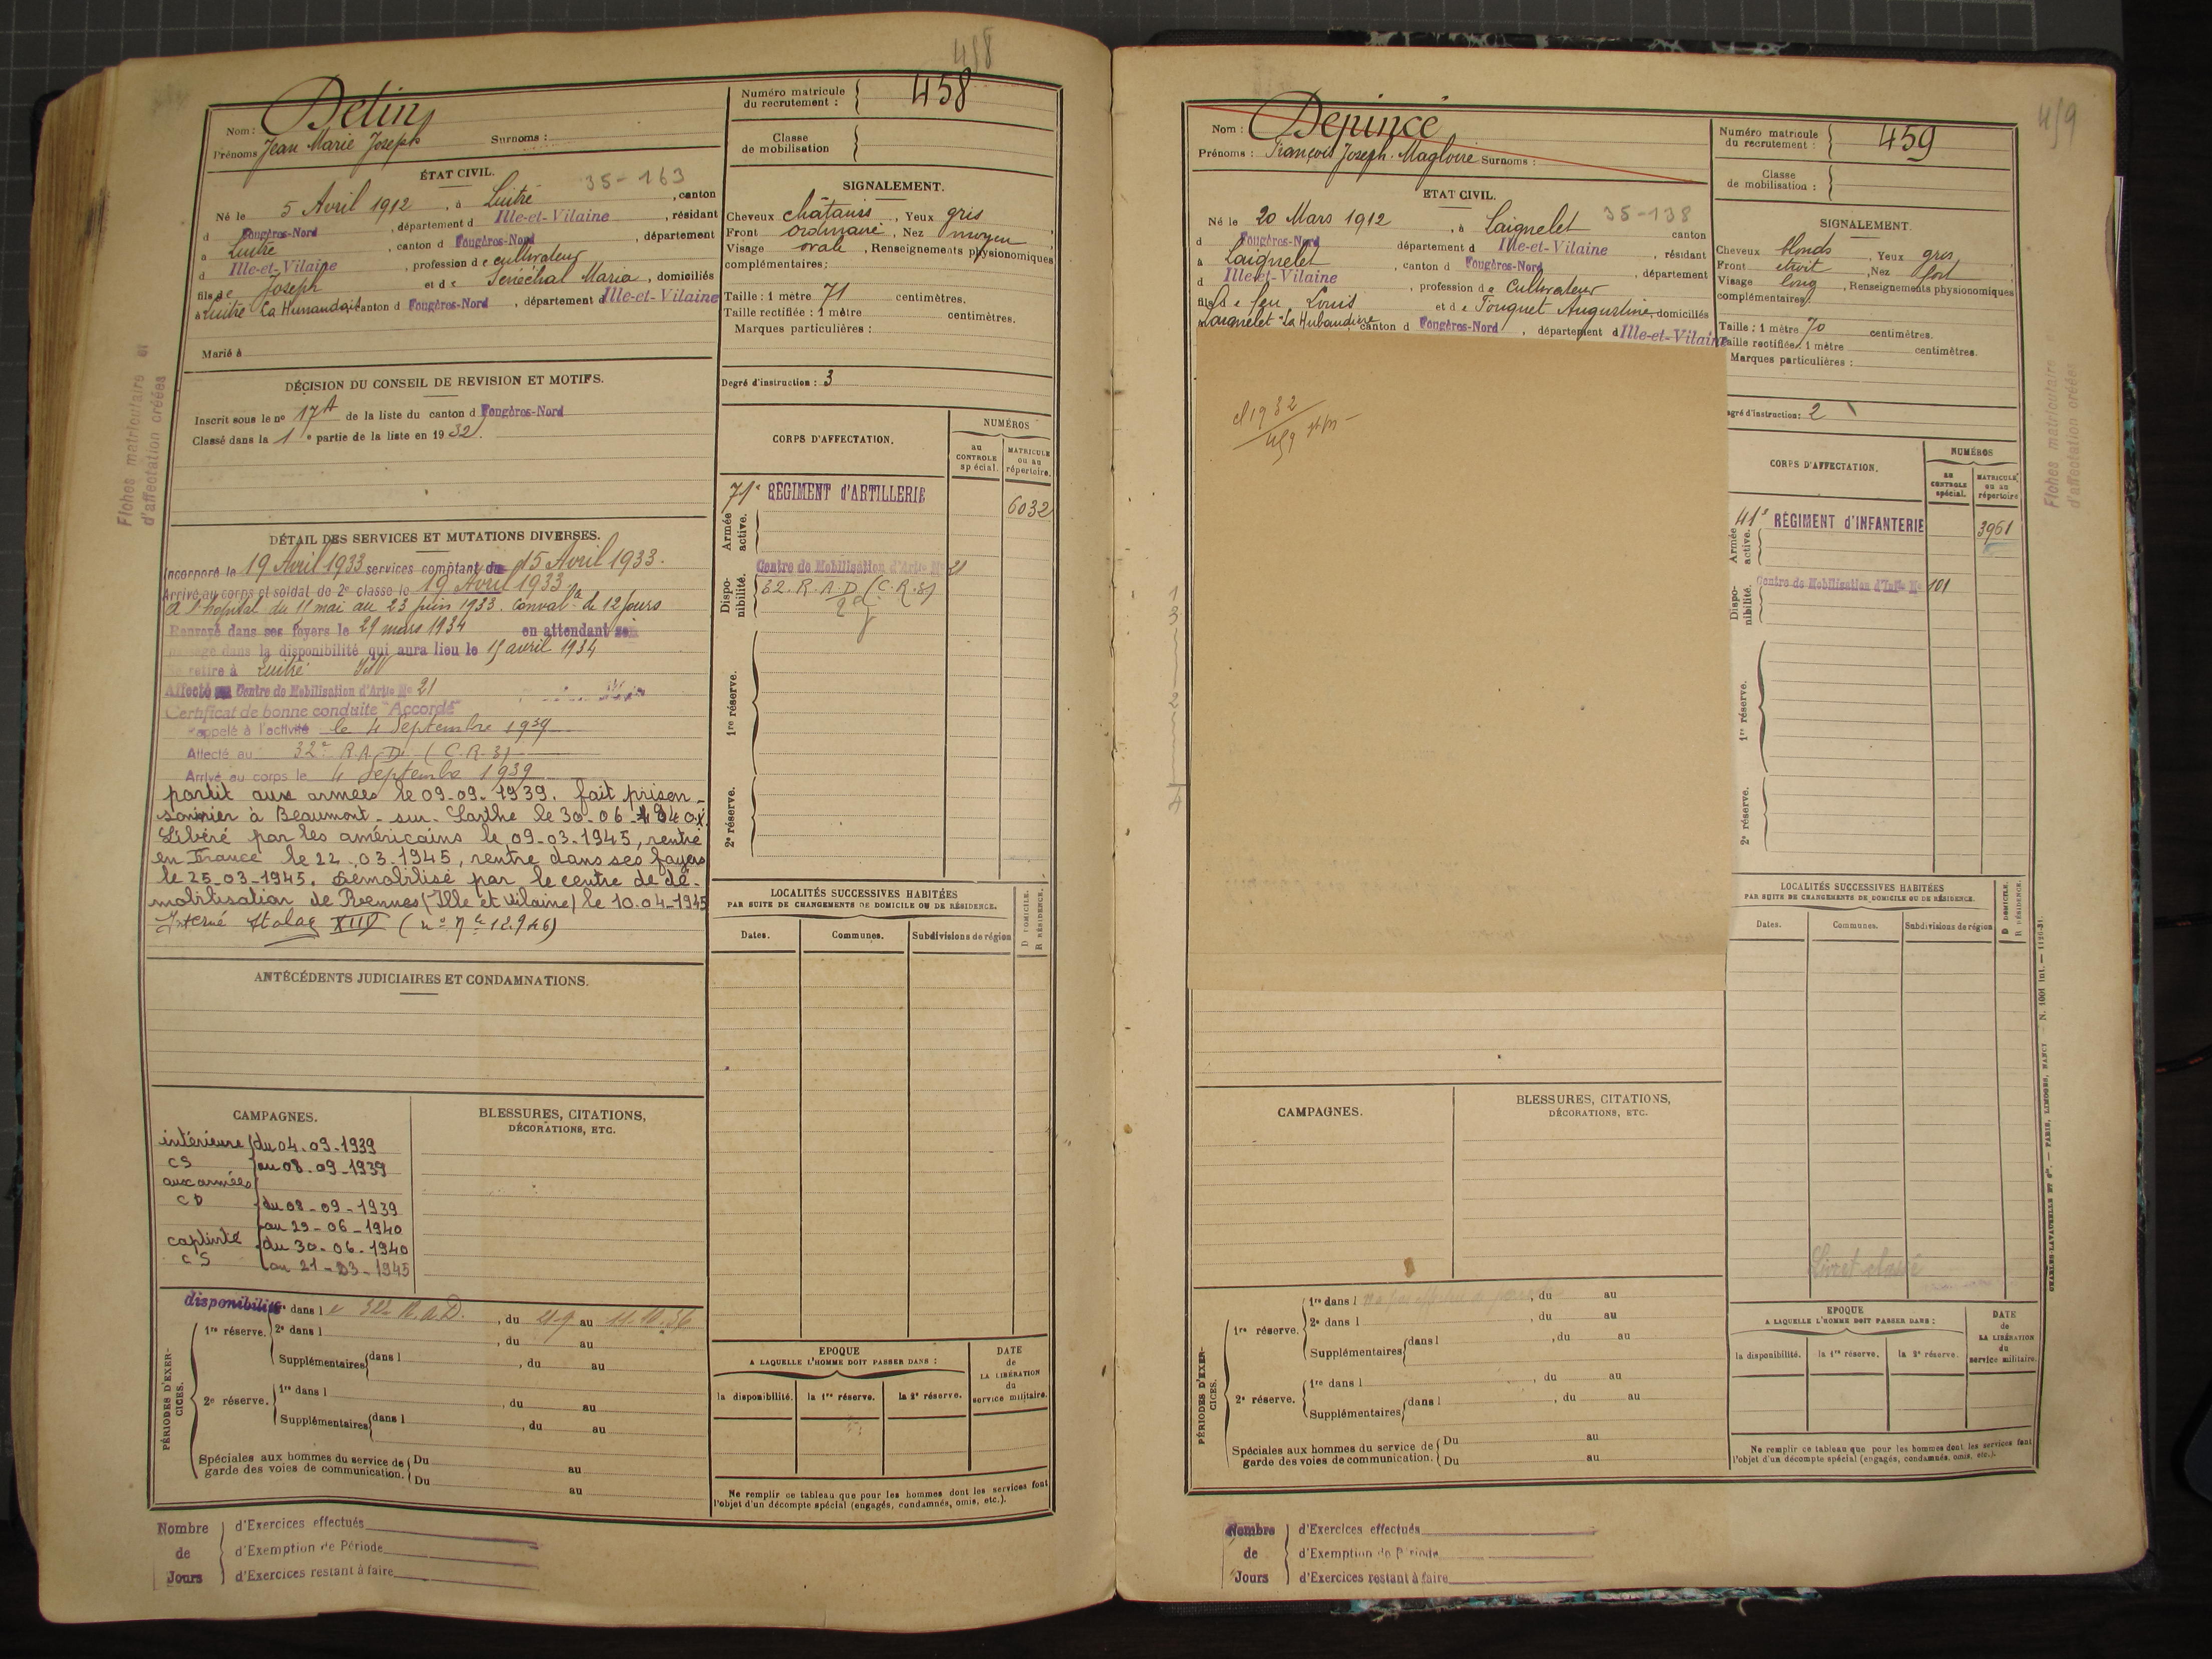 458
Nom : Délin
Prénoms Jean Marie Joseph Surnoms :
Numéro matricule du recrutement : 458
Classe de mobilisation
ÉTAT CIVIL. 35-163
Né le 5 Avril 1912, à Luitré, canton
d Fougères-Nord, département d Ille-et-Vilaine, résidant
à Luitré, canton d Fougères-Nord, département
d Ille-et-Vilaine, profession de cultivateur
fils de Joseph et de Sénéchal Maria, domiciliés
à Luitré canton d Fougères-Nord, département d Ille-et-Vilaine
Marié à
SIGNALEMENT.
Cheveux châtains, Yeux gris
Front ordinaire, Nez moyen
Visage ovale, Renseignements physionomiques
complémentaires :
Taille : 1 mètre 71 centimètres.
Taille rectifiée : 1 mètre centimètres.
Marques particulières :
Degré d'instruction : 3
DÉCISION DU CONSEIL DE REVISION ET MOTIFS.
Inscrit sous le nº 17A de la liste du canton d Fougères-Nord
Classé dans la 1e partie de la liste en 1932.
CORPS D'AFFECTATION.
NUMÉROS
au CONTROLE spécial.
MATRICULE ou au répertoire.
Armée active.
71e RÉGIMENT d'ARTILLERIE 6032
Disponibilité.
Centre de Mobilisation d'Artie Nº 21
32. R.A.D (C.R.3)
1re réserve.
2e réserve.
DÉTAIL DES SERVICES ET MUTATIONS DIVERSES.
Incorporé le 19 Avril 1933 services comptant du 15 Avril 1933.
Arrivé au corps et soldat de 2e classe le 19 Avril 1933
A l'hôpital du 11 mai au 23 juin 1933. Conval ce de 12 jours
Renvoyé dans ses foyers le 29 mars 1934 en attendant son
passage dans la disponibilité qui aura lieu le 15 avril 1934
Se retire à Luitré I&V
Affecté au Centre de Mobilisation d'Artie Nº 21
Certificat de bonne conduite "Accordé"
Rappelé à l'activité le 4 Septembre 1939
Affecté au 32e R.A.D. (C.R.3)
Arrivé au corps le 4 Septembre 1939
partit aux armées le 09-09-1939. fait prison-
sonnier à Beaumont-sur-Sarthe le 30-06-1940.
Libéré par les américains le 09-03-1945, rentré
en France le 22-03-1945, rentre dans ses foyers
le 25-03-1945. Démobilisé par le centre de dé-
mobilisation de Rennes (Ille et Vilaine) le 10-04-1945
Interné Stalag
LOCALITÉS SUCCESSIVES HABITÉES
PAR SUITE DE CHANGEMENTS DE DOMICILE OU DE RÉSIDENCE.
D DOMICILE.
R RÉSIDENCE.
Dates. Communes. Subdivisions de région
ANTÉCÉDENTS JUDICIAIRES ET CONDAMNATIONS.
CAMPAGNES.
intérieure du 04-09-1939
CS au 08-09-1939
aux armées
CD du 08-09-1939
au 29-06-1940
captivité du 30-06-1940
CS au 21-03-1945
BLESSURES, CITATIONS,
DÉCORATIONS, ETC.
PÉRIODES D'EXERCICES.
disponibilité dans l e 322 R.A.D., du 21-9 au 11-10-36
1re réserve. 2e dans l , du au
Supplémentaires dans l , du au
2e réserve. 1re dans l , du au
Supplémentaires dans l , du au
Spéciales aux hommes du service de garde des voies de communication. Du au
Du au
EPOQUE
A LAQUELLE L'HOMME DOIT PASSER DANS :
la disponibilité. la 1re réserve. la 2e réserve.
DATE de LA LIBÉRATION du service militaire.
Ne remplir ce tableau que pour les hommes dont les services font
l'objet d'un décompte spécial (engagés, condamnés, omis, etc.).
Nombre de Jours
d'Exercices effectués
d'Exemption de Période
d'Exercices restant à faire
Fiches matriculaire et
d'affectation créées
459
Nom : Depincé
Prénoms : François Joseph. Magloire Surnoms :
Numéro matricule du recrutement : 459
Classe de mobilisation :
ETAT CIVIL.
Né le 20 Mars 1912, à Laignelet 35-138 canton
d Fougères-Nord département d Ille-et-Vilaine, résidant
à Laignelet, canton d Fougères-Nord, département
d Ille-et-Vilaine, profession de Cultivateur
fils de feu Louis et de Fouquet Augustine, domiciliés
Laignelet "La Hubaudière canton d Fougères-Nord, département d Ille-et-Vilaine
SIGNALEMENT.
Cheveux blonds, Yeux gris
Front étroit, Nez fort
Visage long, Renseignements physionomiques
complémentaires :
Taille : 1 mètre 70 centimètres.
Taille rectifiée : 1 mètre centimètres.
Marques particulières :
egré d'instruction : 2
cl 1932
459
CORPS D'AFFECTATION.
NUMÉROS
au CONTROLE spécial.
MATRICULE ou au répertoire
Armée active.
41e RÉGIMENT d'INFANTERIE 3961
Disponibilité.
Centre de Mobilisation d'Infie Nº 101
1re réserve.
2e réserve.
LOCALITÉS SUCCESSIVES HABITÉES
PAR SUITE DE CHANGEMENTS DE DOMICILE OU DE RÉSIDENCE.
D DOMICILE.
R RÉSIDENCE.
Dates. Communes. Subdivisions de région
CAMPAGNES.
BLESSURES, CITATIONS,
DÉCORATIONS, ETC.
Livret classé
PÉRIODES D'EXERCICES.
1re réserve. 1re dans l , du au
2e dans l , du au
Supplémentaires dans l , du au
2e réserve. 1re dans l , du au
Supplémentaires dans l , du au
Spéciales aux hommes du service de garde des voies de communication. Du au
Du au
EPOQUE
A LAQUELLE L'HOMME DOIT PASSER DANS :
la disponibilité. la 1re réserve. la 2e réserve.
DATE de LA LIBÉRATION du service militaire.
Ne remplir ce tableau que pour les hommes dont les services font
l'objet d'un décompte spécial (engagés, condamnés, omis, etc.).
Nombre de Jours
d'Exercices effectués
d'Exemption de Période
d'Exercices restant à faire
Fiches matriculaire e
d'affectation créées
CHARLES-LAVAUZELLE ET Cie. — PARIS, LIMOGES, NANCY